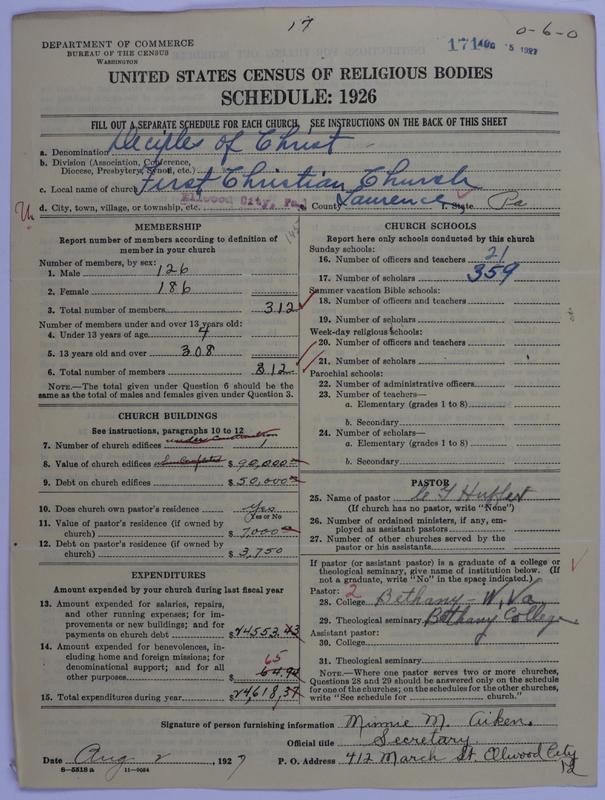 17
0-6-0
DEPARTMENT OF COMMERCE
BUREAU OF THE CENSUS
WASHINGTON
171 AUG 5 1927
UNITED STATES CENSUS OF RELIGIOUS BODIES
SCHEDULE: 1926
FILL OUT A SEPARATE SCHEDULE FOR EACH CHURCH. SEE INSTRUCTIONS ON THE BACK OF THIS SHEET
a. Denomination Disciples of Christ
b. Division (Association, Conference,
Diocese, Presbytery, Synod, etc.)
c. Local name of church First Christian Church
d. City, town, village, or township, etc. Ellwood City, Pa. County Lawrence f. State Pa
MEMBERSHIP
Report number of members according to definition of
member in your church
Number of members, by sex:
1. Male 126
2. Female 186
3. Total number of members 312
Number of members under and over 13 years old:
4. Under 13 years of age 4
5. 13 years old and over 308
6. Total number of members 312
NOTE.—The total given under Question 6 should be
the same as total of males and females given under Question 3.
CHURCH BUILDINGS
See instructions, paragraphs 10 to 12
7. Number of church edifices under Construction
8. Value of church edifices $ 90,000
9. Debt on church edifices $ 50,000
10. Does church own pastor's residence? Yes
Yes or No
11. Value of pastor's residence (if owned by
church) $ 7,000
12. Debt on pastor's residence (if owned by
church) $ 3,750
EXPENDITURES
Amount expended by your church during last fiscal year
13. Amount expended for salaries, repairs,
and other running expenses; for im-
provements or new buildings; and for
payments on church debt $ 24553.43
14. Amount expended for benevolences, in-
cluding home and foreign missions; for
denominational support; and for all
other purposes 65 64.94
15. Total expenditures during year $ 24,618.37
CHURCH SCHOOLS
Report here only schools conducted by this church
Sunday schools:
16. Number of officers and teachers 21
17. Number of scholars 359
Summer vacation Bible schools:
18. Number of officers and teachers
19. Number of scholars
Week-day religious schools:
20. Number of officers and teachers
21. Number of scholars
Parochial schools:
22. Number of administrative officers
23. Number of teachers—
a. Elementary (grades 1 to 8)
b. Secondary
24. Number of scholars—
a. Elementary (grades 1 to 8)
b. Secondary
PASTOR
25. Name of pastor
(If church has no pastor, write "None")
26. Number of ordained ministers, if any, em-
ployed as assistant pastors
27. Number of other churches served by the
pastor or his assistants
If pastor (or assistant pastor) is a graduate of a college or
theological seminary, give name of institution below. (If
not a graduate, write "No" in the space indicated.)
Pastor: 2
28. College Bethany - W. Va
29. Theological seminary Bethany College
Assistant pastor:
30. College
31. Theological seminary
NOTE.—Where one pastor serves two or more churches,
Questions 28 and 29 should be answered only on the schedule
for one of the churches; on the schedules for the other churches,
write "See schedule for church."
Signature of person furnishing information Minnie M. Aiken
Official title Secretary
Date Aug 2, 1927 P. O. Address 412 March St. Ellwood City
Pa
8—5518 a 11—9084